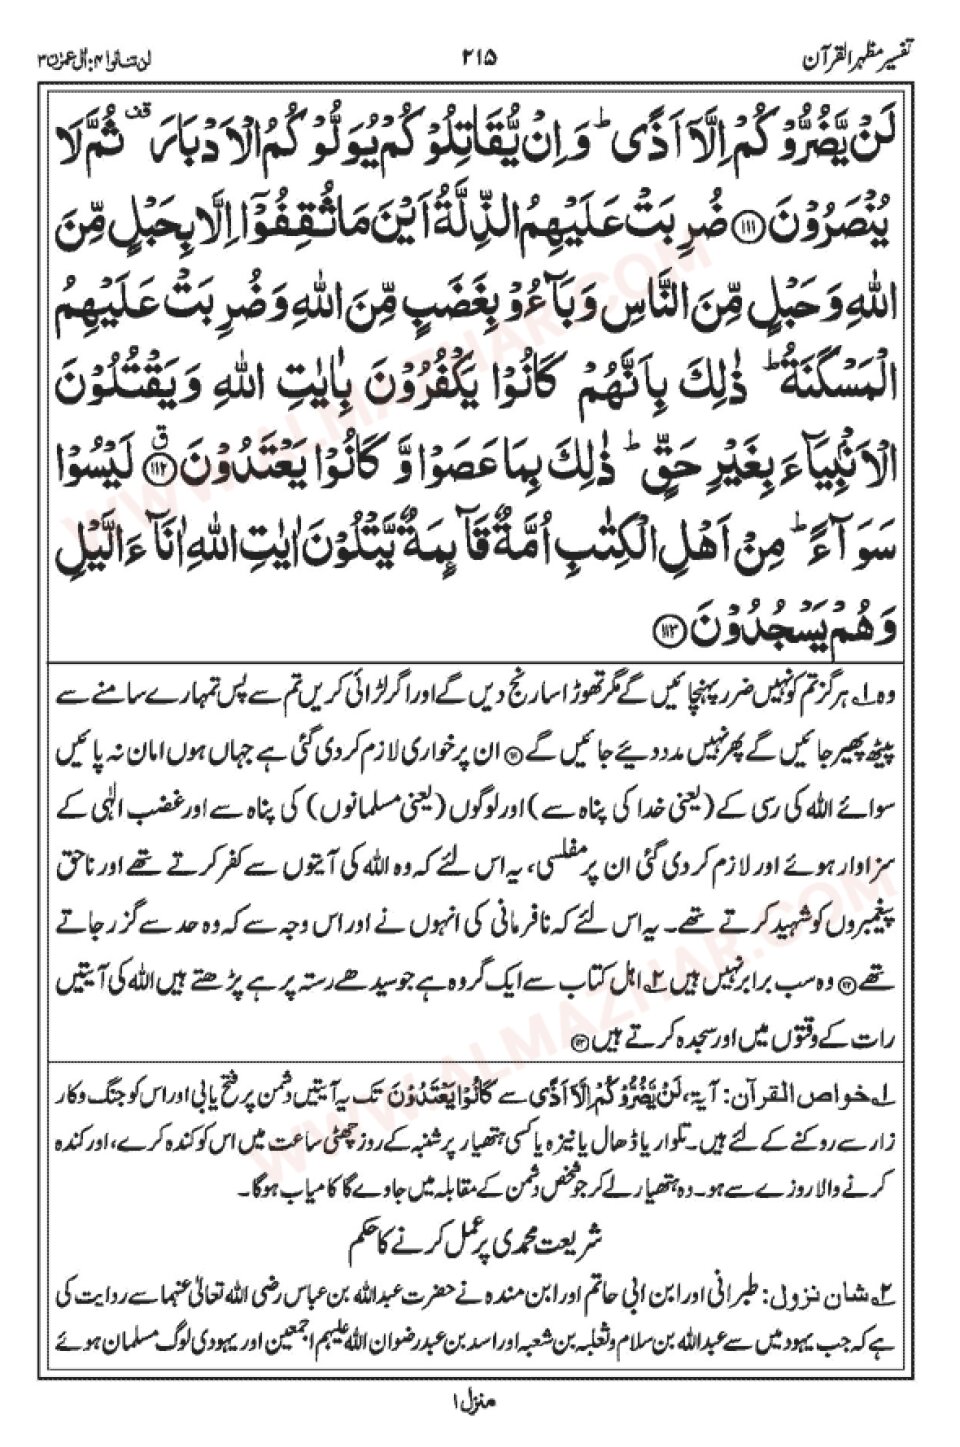 تفسیر مظہر القرآن ۲۱۵ لن تنالوا ۴: آل عمرٰن ۳
لَنْ يَّضُرُّوْكُمْ اِلَّاۤ اَذًى ؕ وَ اِنْ يُّقَاتِلُوْكُمْ يُوَلُّوْكُمُ الْاَدْبَارَ ۫ قف ثُمَّ لَا
يُنْصَرُوْنَ ۝۱۱۱ ضُرِبَتْ عَلَيْهِمُ الذِّلَّةُ اَيْنَ مَا ثُقِفُوْۤا اِلَّا بِحَبْلٍ مِّنَ
اللّٰهِ وَ حَبْلٍ مِّنَ النَّاسِ وَ بَآءُوْ بِغَضَبٍ مِّنَ اللّٰهِ وَ ضُرِبَتْ عَلَيْهِمُ
الْمَسْكَنَةُ ؕ ذٰلِكَ بِاَنَّهُمْ كَانُوْا يَكْفُرُوْنَ بِاٰيٰتِ اللّٰهِ وَ يَقْتُلُوْنَ
الْاَنْۢبِيَآءَ بِغَيْرِ حَقٍّ ؕ ذٰلِكَ بِمَا عَصَوْا وَّ كَانُوْا يَعْتَدُوْنَ ۝۱۱۲ ق لَيْسُوْا
سَوَآءً ؕ مِنْ اَهْلِ الْكِتٰبِ اُمَّةٌ قَآىِٕمَةٌ يَّتْلُوْنَ اٰيٰتِ اللّٰهِ اٰنَآءَ الَّيْلِ
وَ هُمْ يَسْجُدُوْنَ ۝۱۱۳
وہ ۱؎ ہرگز تم کو نہیں ضرر پہنچائیں گے مگر تھوڑا سا رنج دیں گے اور اگر لڑائی کریں تم سے پس تمہارے سامنے سے
پیٹھ پھیر جائیں گے پھر نہیں مدد دیے جائیں گے ۝۱۱۱ ان پر خواری لازم کردی گئی ہے جہاں ہوں امان نہ پائیں
سوائے اللہ کی رسی کے (یعنی خدا کی پناہ سے) اور لوگوں (یعنی مسلمانوں) کی پناہ سے اور غضب الٰہی کے
سزاوار ہوئے اور لازم کردی گئی ان پر مفلسی، یہ اس لئے کہ وہ اللہ کی آیتوں سے کفر کرتے تھے اور ناحق
پیغمبروں کو شہید کرتے تھے۔ یہ اس لئے کہ نافرمانی کی انہوں نے اور اس وجہ سے کہ وہ حد سے گزر جاتے
تھے ۝۱۱۲ وہ سب برابر نہیں ہیں ۲؎ اہل کتاب سے ایک گروہ ہے جو سیدھے رستہ پر ہے پڑھتے ہیں اللہ کی آیتیں
رات کے وقتوں میں اور سجدہ کرتے ہیں ۝۱۱۳
۱؎ خواص القرآن: آیۃ، لَنْ يَّضُرُّوْكُمْ اِلَّاۤ اَذًى سے كَانُوْا يَعْتَدُوْنَ تک یہ آیتیں دشمن پر فتح یابی اور اس کو جنگ و کار
زار سے روکنے کے لئے ہیں۔ تلوار یا ڈھال یا نیزہ یا کسی ہتھیار پر شنبہ کے روز چھٹی ساعت میں اس کو کندہ کرے، اور کندہ
کرنے والا روزے سے ہو۔ وہ ہتھیار لے کر جو شخص دشمن کے مقابلہ میں جاوے گا کامیاب ہوگا۔
شریعت محمدی پر عمل کرنے کا حکم
۲؎ شان نزول: طبرانی اور ابن ابی حاتم اور ابن مندہ نے حضرت عبداللہ بن عباس رضی اللہ تعالیٰ عنہما سے روایت کی
ہے کہ جب یہود میں سے عبداللہ بن سلام و ثعلبہ بن شعبہ اور اسد بن عبد رضوان اللہ علیہم اجمعین اور یہودی لوگ مسلمان ہوئے
منزل ۱
WWW.ALMAZHAR.COM
WWW.ALMAZHAR.COM